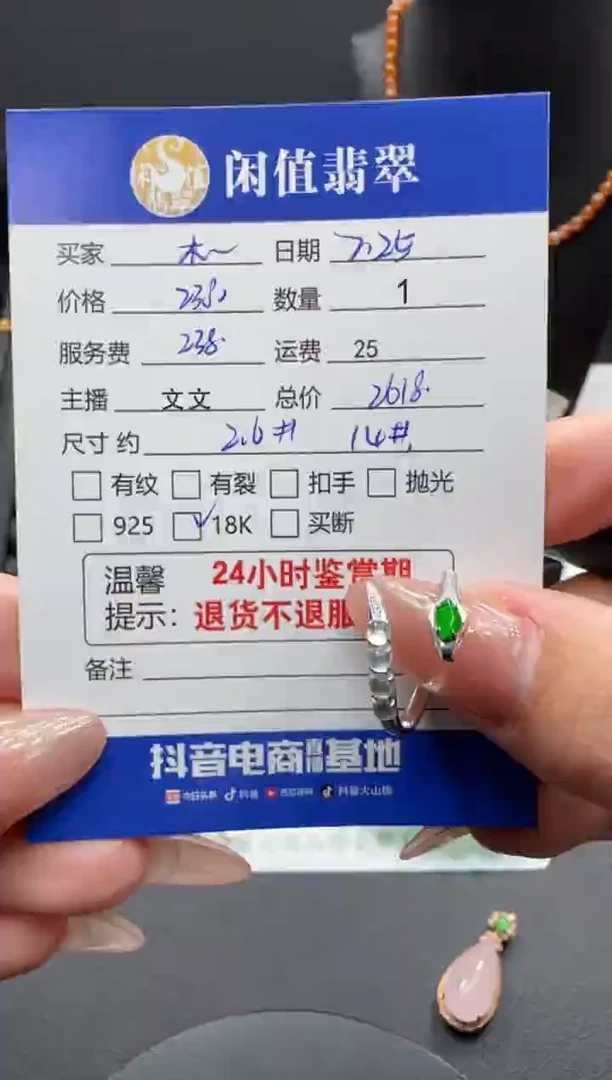 闲值翡翠
买家 木一 日期 7.25
价格 2380 数量 1
服务费 238. 运费 25
主播 文文 总价 2618.
尺寸 约 2.6# 14#.
有纹 有裂 扣手 抛光
925 18K 买断
温馨 24小时鉴赏期
提示: 退货不退服
备注
抖音电商直播基地
今日头条 抖音 西瓜视频 抖音火山版